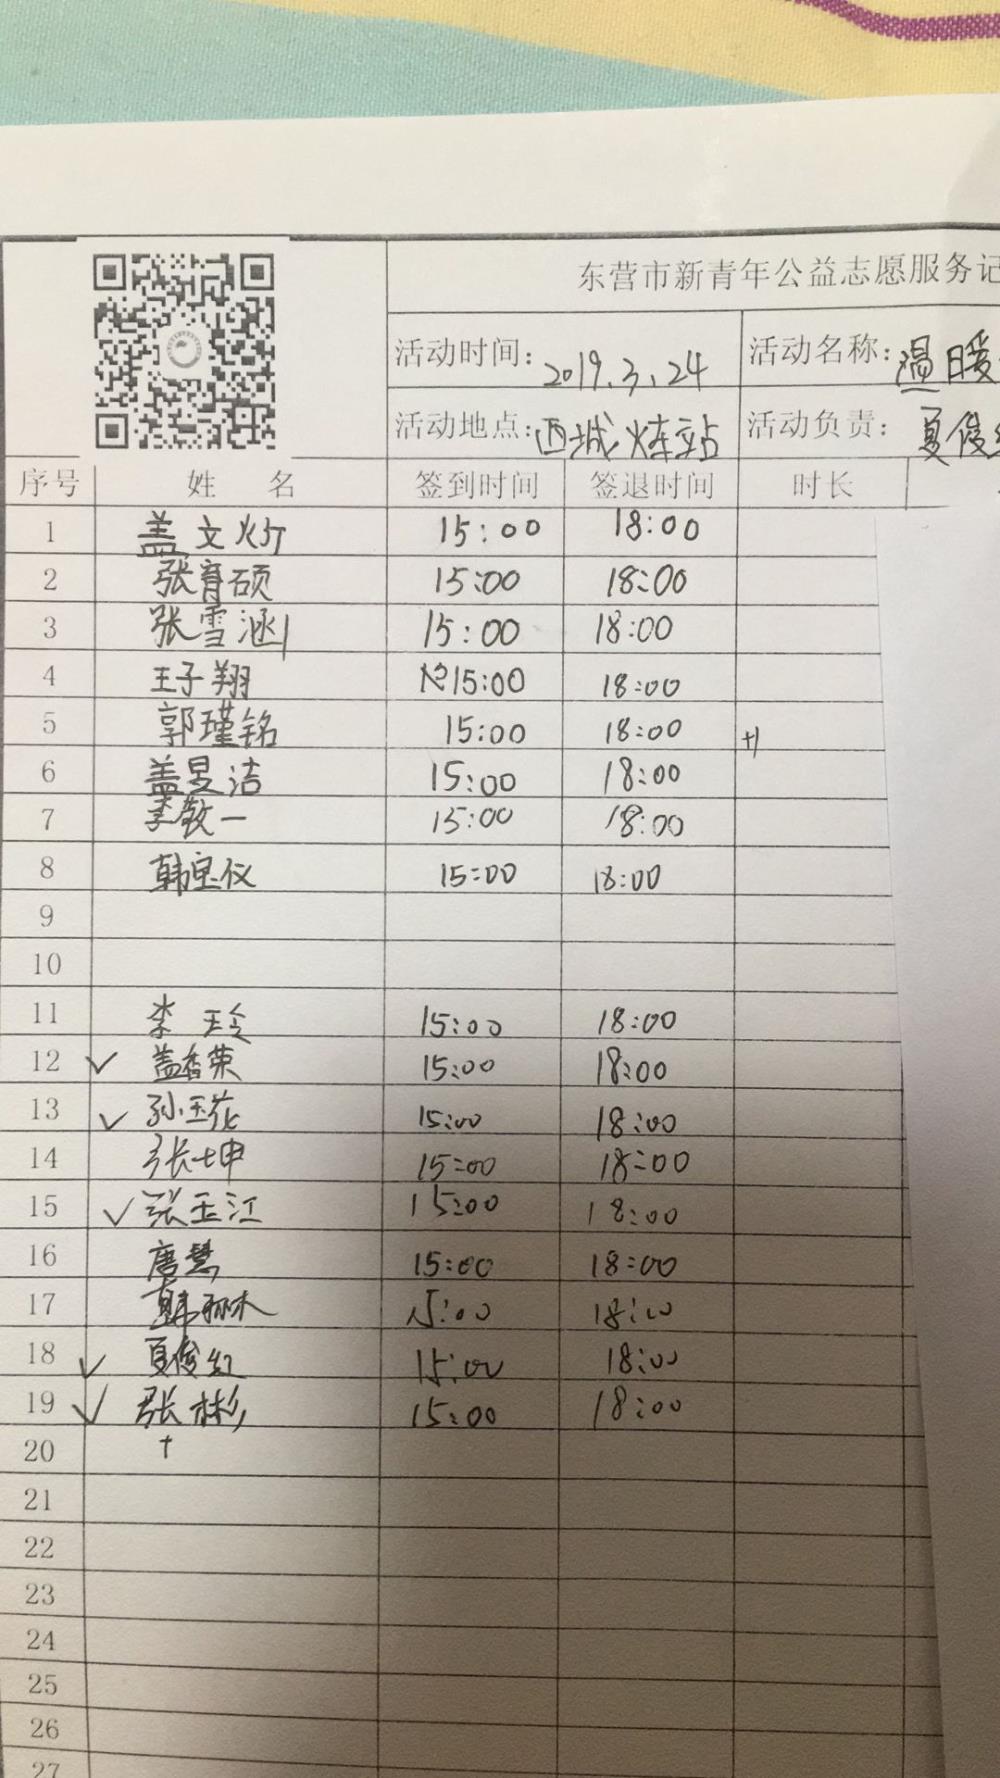 东营市新青年公益志愿服务记
活动时间: 2019.3.24 活动名称: 温暖
活动地点: 西城炼站 活动负责: 夏俊红
序号 姓 名 签到时间 签退时间 时长
1 盖文炘 15:00 18:00
2 张育硕 15:00 18:00
3 张雪涵 15:00 18:00
4 王子翔 15:00 18:00
5 郭瑾铭 15:00 18:00
6 盖昱洁 15:00 18:00
7 李敬一 15:00 18:00
8 韩宝仪 15:00 18:00
9
10
11 李玲 15:00 18:00
12 ✓ 盖香荣 15:00 18:00
13 ✓ 孙玉花 15:00 18:00
14 张坤 15:00 18:00
15 ✓ 张玉江 15:00 18:00
16 唐慧 15:00 18:00
17 韩 15:00 18:00
18 ✓ 夏俊红 15:00 18:00
19 ✓ 张彬 15:00 18:00
20
21
22
23
24
25
26
27